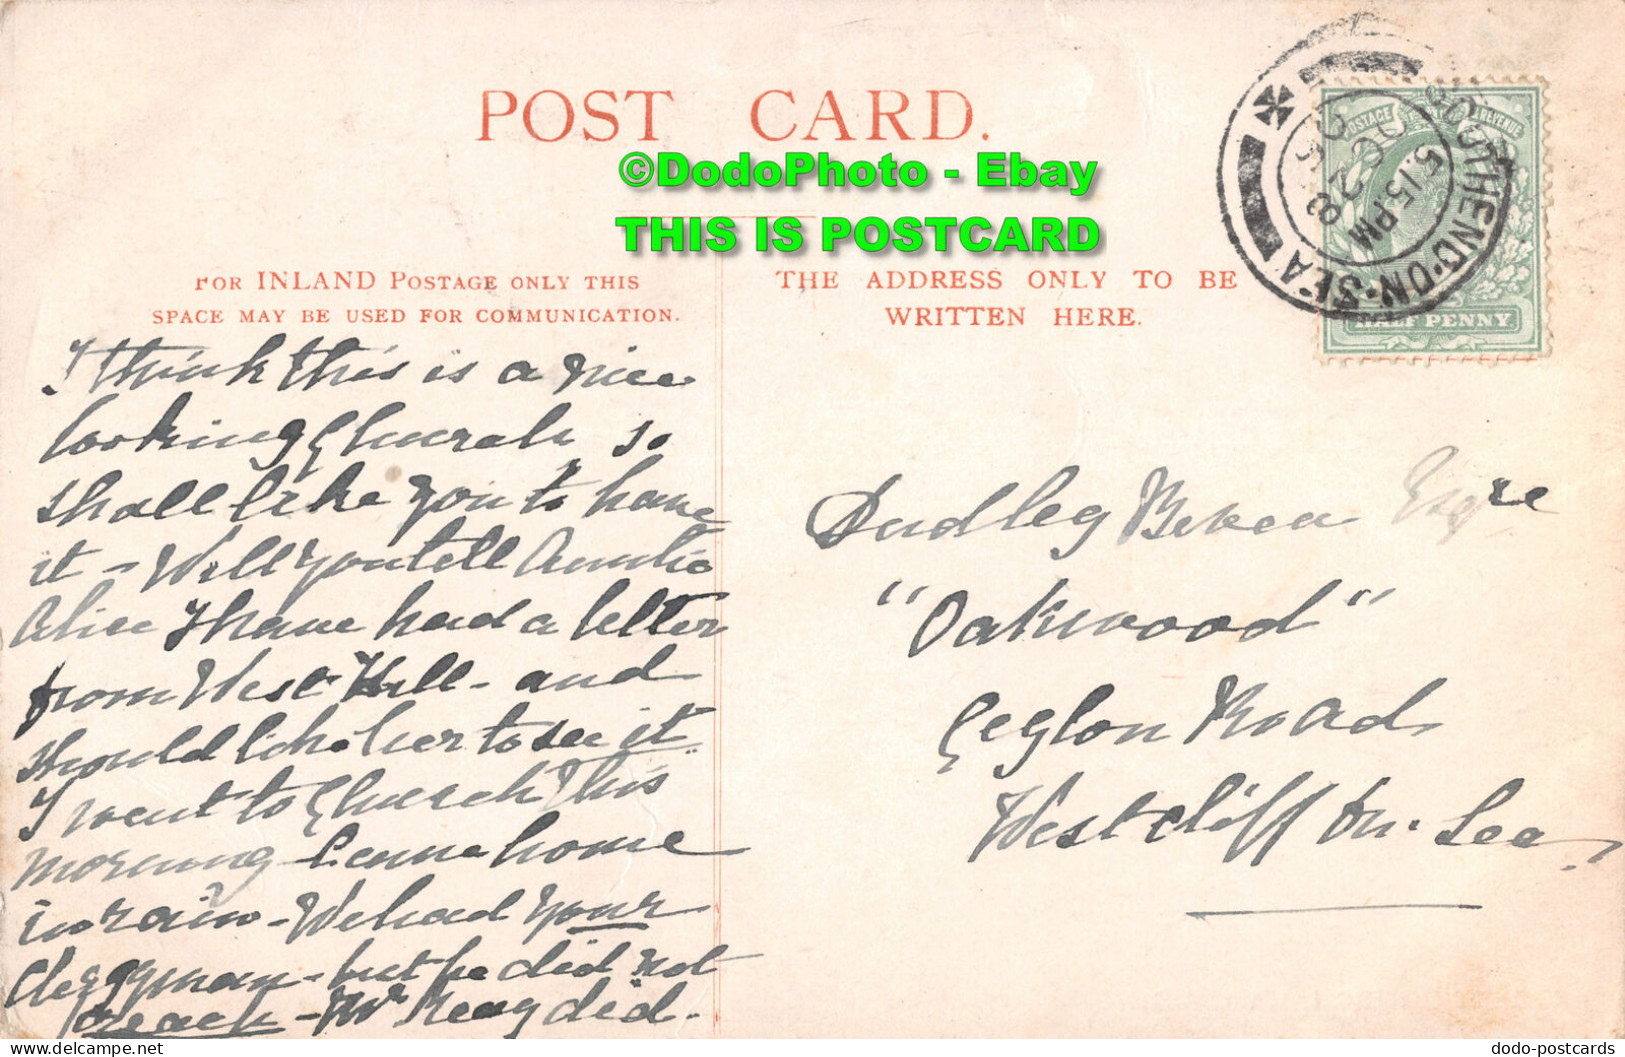 POST CARD.
©DodoPhoto - Ebay
THIS IS POSTCARD
FOR INLAND POSTAGE ONLY THIS
SPACE MAY BE USED FOR COMMUNICATION.
THE ADDRESS ONLY TO BE
WRITTEN HERE.
POSTAGE REVENUE
HALF PENNY
SOUTHEND-ON-SEA
5.15 PM
I think this is a nice
looking Church so
shall like you to have
it - Will you tell Auntie
Alice I have had a letter
from West Hill - and
should like her to see it.
I went to Church this
morning - Came home
in rain - We had your
Clergyman - but he did not
preach - Mr Reay did.
Dudley Esqre
"Oakwood"
Ceylon Road
Westcliff On. Sea
dodo-postcards